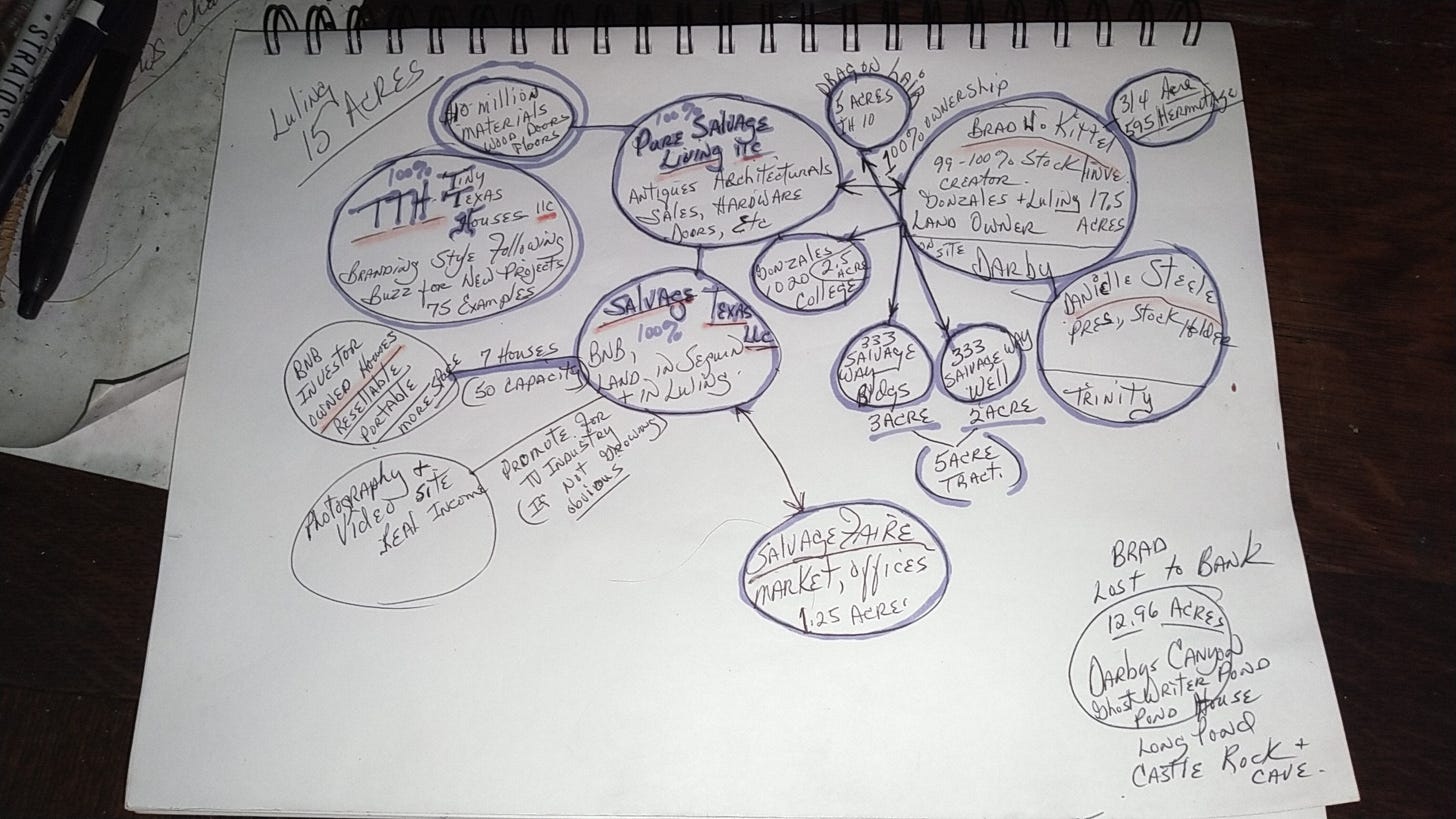 STRATO
Luling
15 ACRES
$10 million
MATERIALS
WOOD, DOORS
Floors
100%
PURE SALVAGE
LIVING
ANTIQUES ARCHITECTURALS
SALES, HARDWARE
DOORS, Etc
5 ACRES
IH 10
100% OWNERSHIP
BRAD W. KITTEL
99-100% STOCK/INVE.
CREATOR.
GONZALES + Luling 17.5
LAND OWNER ACRES
ON SITE
DARBY
3/4 Acre
595 HERMITAGE
100%
TTH Tiny
TEXAS
HOUSES LLC
BRANDING STYLE Following
BUZZ for NEW PROJECTS
75 EXAMPLES
GONZALES
1020 2.5
ACRE
COLLEGE
DANIELLE STEELE
PRES., STOCK Holder
TRINITY
SALVAGE TEXAS
100% LLC
BNB,
LAND IN SEQUIN
+ IN LULING.
7 HOUSES
(50 CAPACITY)
BNB
INVESTOR
OWNED HOUSES
RESELLABLE
PORTABLE
MORE SPACE
333
SALVAGE
WAY
BLDGS
3 ACRE
333
SALVAGE WAY
WELL
2 ACRE
(5 ACRE
TRACT.)
PROMOTE FOR
TV INDUSTRY
(IF NOT GROWING)
obvious
Photography +
Video SITE
REAL INCOME
SALVAGE FAIRE
MARKET, OFFICES
1.25 ACRE
BRAD
LOST to BANK
12.96 ACRES
DARBYS CANYON
GHOSTWRITER POND
POND HOUSE
LONG POND
CASTLE ROCK +
CAVE.